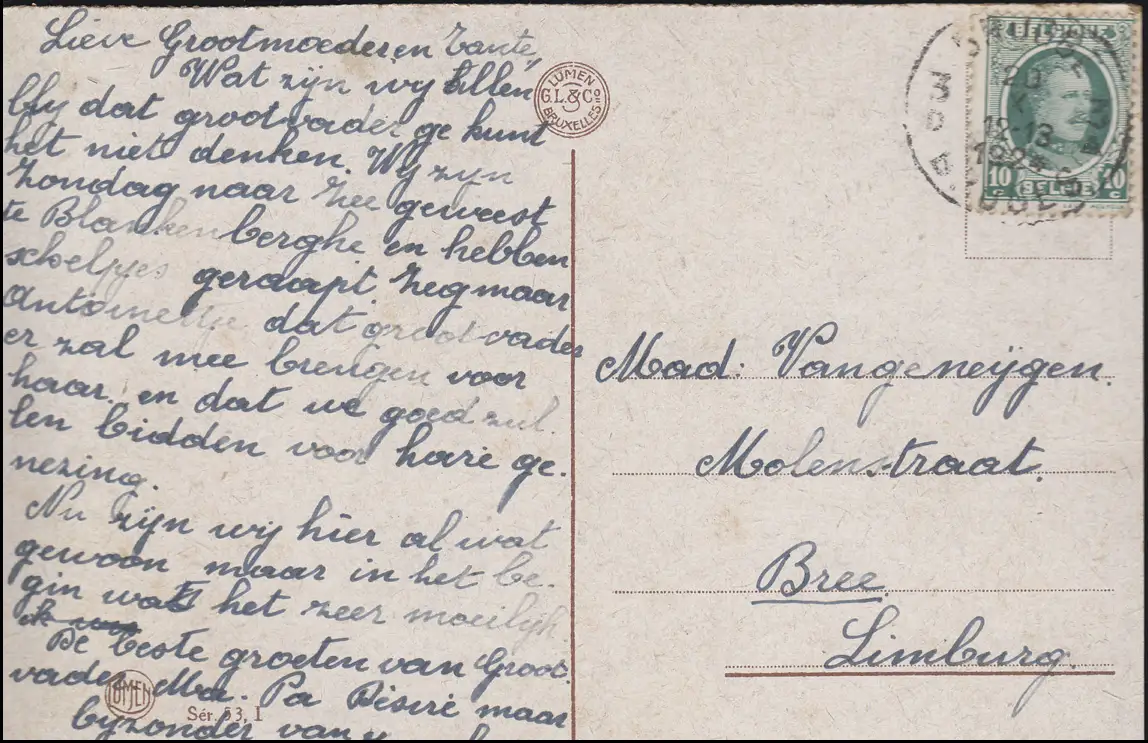 Lieve Grootmoeder en Tante,
Wat zijn wij allen
bly dat grootvader ge kunt
het niet denken. Wy zyn
Zondag naar Zee geweest
te Blankenberghe en hebben
schelpjes geraapt. Zeg maar
Antoinettje dat grootvader
er zal mee brengen voor
haar, en dat we goed zul
len bidden voor hare ge-
nezing.
Nu zijn wij hier al wat
gewoon maar in het be-
gin was het zeer moeilyk.
De beste groeten van Groot-
vader Ma. Pa Désiré maar
byzonder van
LUMEN
G.L.& Co
BRUXELLES
LUMEN
Sér. 53, I
BELGIQUE
12-13
10 c BELGIE 10 c
Mad: Vangeneijgen.
Molenstraat.
Bree.
Limburg.